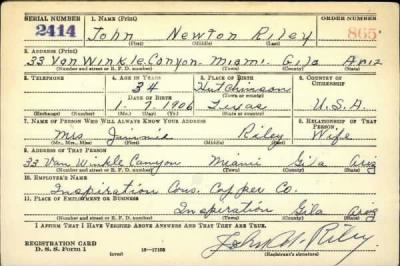 SERIAL NUMBER 1. NAME (Print) ORDER NUMBER
2414 John Newton Riley 865
(First) (Middle) (Last)
2. ADDRESS (Print)
33 Van Winkle Canyon. Miami Gila Ariz
(Number and street or R. F. D. number) (Town) (County) (State)
3. TELEPHONE 4. AGE IN YEARS 5. PLACE OF BIRTH 6. COUNTRY OF CITIZENSHIP
34 Hutchinson
DATE OF BIRTH (Town or county)
1. 7. 1906 Texas U.S.A.
(Exchange) (Number) (Mo.) (Day) (Yr.) (State or country)
7. NAME OF PERSON WHO WILL ALWAYS KNOW YOUR ADDRESS 8. RELATIONSHIP OF THAT PERSON
Mrs Jimmie Riley Wife
(Mr., Mrs., Miss) (First) (Middle) (Last)
9. ADDRESS OF THAT PERSON
33 Van Winkle Canyon Miami Gila Ariz
(Number and street or R. F. D. number) (Town) (County) (State)
10. EMPLOYER'S NAME
Inspiration Cons. Copper Co.
11. PLACE OF EMPLOYMENT OR BUSINESS
Inspiration Gila Ariz
(Number and street or R. F. D. number) (Town) (County) (State)
I AFFIRM THAT I HAVE VERIFIED ABOVE ANSWERS AND THAT THEY ARE TRUE.
REGISTRATION CARD John N. Riley
D. S. S. Form 1 (over) 16—17105 (Registrant's signature)